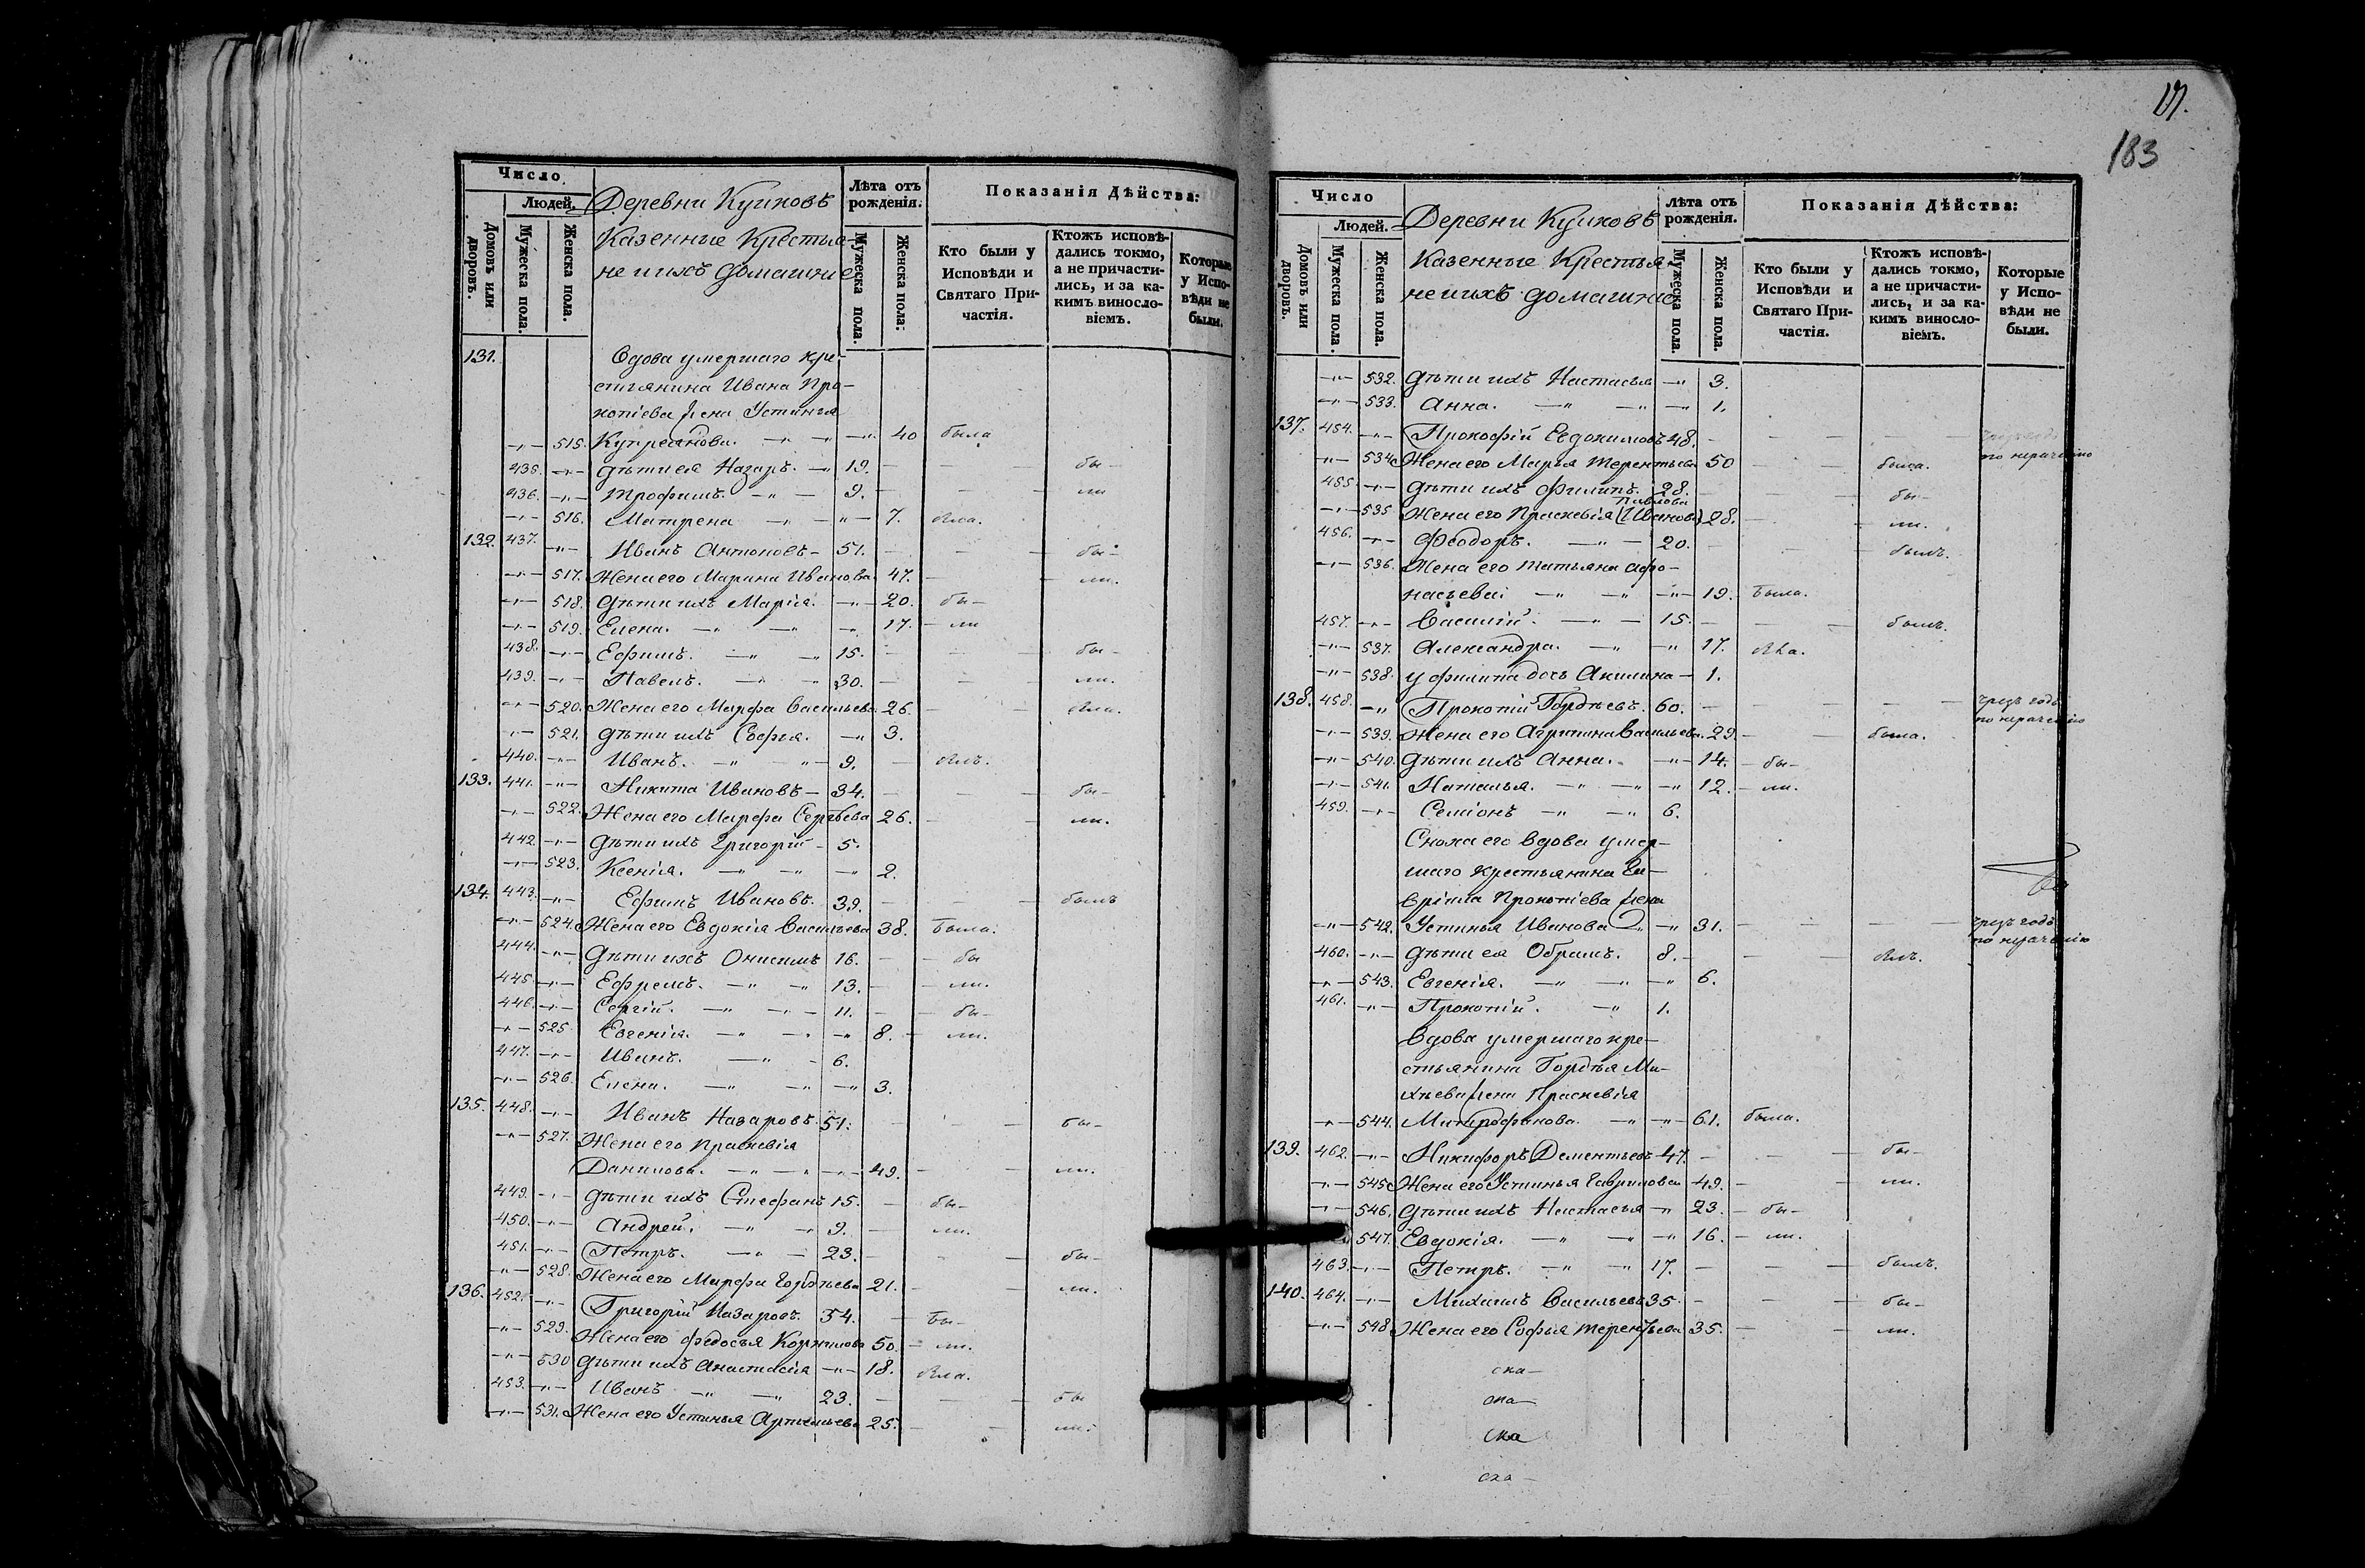 Число
Людей.
Домовъ или дворовъ.
Мужеска пола.
Женска пола.
Деревни Куиковъ
Казенные Крестья-
не и ихъ домашніе
Лѣта отъ рожденія.
Мужеска пола.
Женска пола.
Показанія Дѣйства:
Кто были у Исповѣди и Святаго При-частія.
Ктожъ исповѣ-дались токмо, а не причасти-лись, и за ка-кимъ винослo-віемъ.
Которые у Испо-вѣди не были.
131. Вдова умершаго кре-
стьянина Ивана Про-
копіева жена Устинья
515. Купреянова. 40 была
435. дѣти ея Назаръ. 19. бы-
436. Трофимъ. 9. ли
516. Матрена 7.
132. 437. Иванъ Антоновъ 51. бы-
517. Жена его Марина Иванова 47. ли.
518. дѣти ихъ Марія. 20. бы-
519. Елена. 17. ли
438. Ефимъ. 15. бы-
439. Павелъ. 30. ли.
520. Жена его Марфа Васильева 26.
521. дѣти ихъ Софья. 3.
440. Иванъ. 9.
133. 441. Никита Ивановъ 34. бы-
522. Жена его Марфа Сергѣева 26. ли.
442. дѣти ихъ Григорій 5.
523. Ксенія. 2.
134. 443. Ефимъ Ивановъ. 39. былъ
524. Жена его Евдокія Васильева 38. Была.
444. Дѣти ихъ Онисимъ 16. бы
445. Ефремъ. 13. ли.
446. Сергій. 11. бы-
525. Евгенія. 8. ли.
447. Иванъ. 6.
526. Елена. 3.
135. 448. Иванъ Назаровъ. 51. бы-
527. Жена его Праскевія
Данилова. 49. ли.
449. дѣти ихъ Стефанъ 15. бы-
450. Андрей. 9. ли.
451. Петръ. 23. бы-
528. Жена его Марфа Гордѣева 21. ли.
136. 452. Григорій Назаровъ. 54. Бы-
529. Жена его Федосья Корнилова 50. ли.
530 дѣти ихъ Анастасія 18.
453. Иванъ 23. бы
531. Жена его Устинья Артемьева 25. ли.
183
Число
Людей.
Домовъ или дворовъ.
Мужеска пола.
Женска пола.
Деревни Куиковъ
Казенные Крестья-
не и ихъ домашніе
Лѣта отъ рожденія.
Мужеска пола.
Женска пола.
Показанія Дѣйства:
Кто были у Исповѣди и Святаго При-частія.
Ктожъ исповѣ-дались токмо, а не причасти-лись, и за ка-кимъ винослo-віемъ.
Которые у Испо-вѣди не были.
532. дѣти ихъ Настасья 3.
533. Анна. 1.
137. 454. Прокофій Евдокимовъ 48. чрезъ годъ
по нераченію
534 Жена его Марья Терентьева 50 была.
455. дѣти ихъ Филипъ. 28. бы-
Павлова
535 Жена его Праскевія (Иванова) 28. ли.
456. Феодоръ. 20. былъ.
536. Жена его Татьяна Афо-
насьева 19. Была.
457. Василій. 15. былъ.
537. Александра. 17.
538. у Филипа дочь Акилина 1.
138. 458. Прокопій Гордѣевъ. 60. чрезъ годъ
по нераченію
539. Жена его Агрипина Васильева. 29. была.
540. дѣти ихъ Анна. 14. бы-
541. Наталья. 12. ли.
459. Семіонъ 6.
Сноха его вдова умер-
шаго крестьянина Га-
вріила Прокопіева жена
542. Устинья Иванова 31. чрезъ годъ
по нераченію
460. дѣти ея Обрамъ. 8.
543. Евгенія. 6.
461. Прокопій. 1.
Вдова умершаго кре-
стьянина Гордѣя Ми-
хѣева жена Праскевія
544. Митрофанова. 61. была.
139. 462. Никифоръ Дементьевъ 47. бы-
545. Жена его Устинья Гаврилова 49. ли.
546. дѣти ихъ Настасья 23. бы-
547. Евдокія. 16. ли.
463. Петръ. 17. былъ.
140. 464. Михаилъ Васильевъ 35. бы-
548 Жена его Софья Терентьева 35. ли.
ска-
ска-
ска
ска-